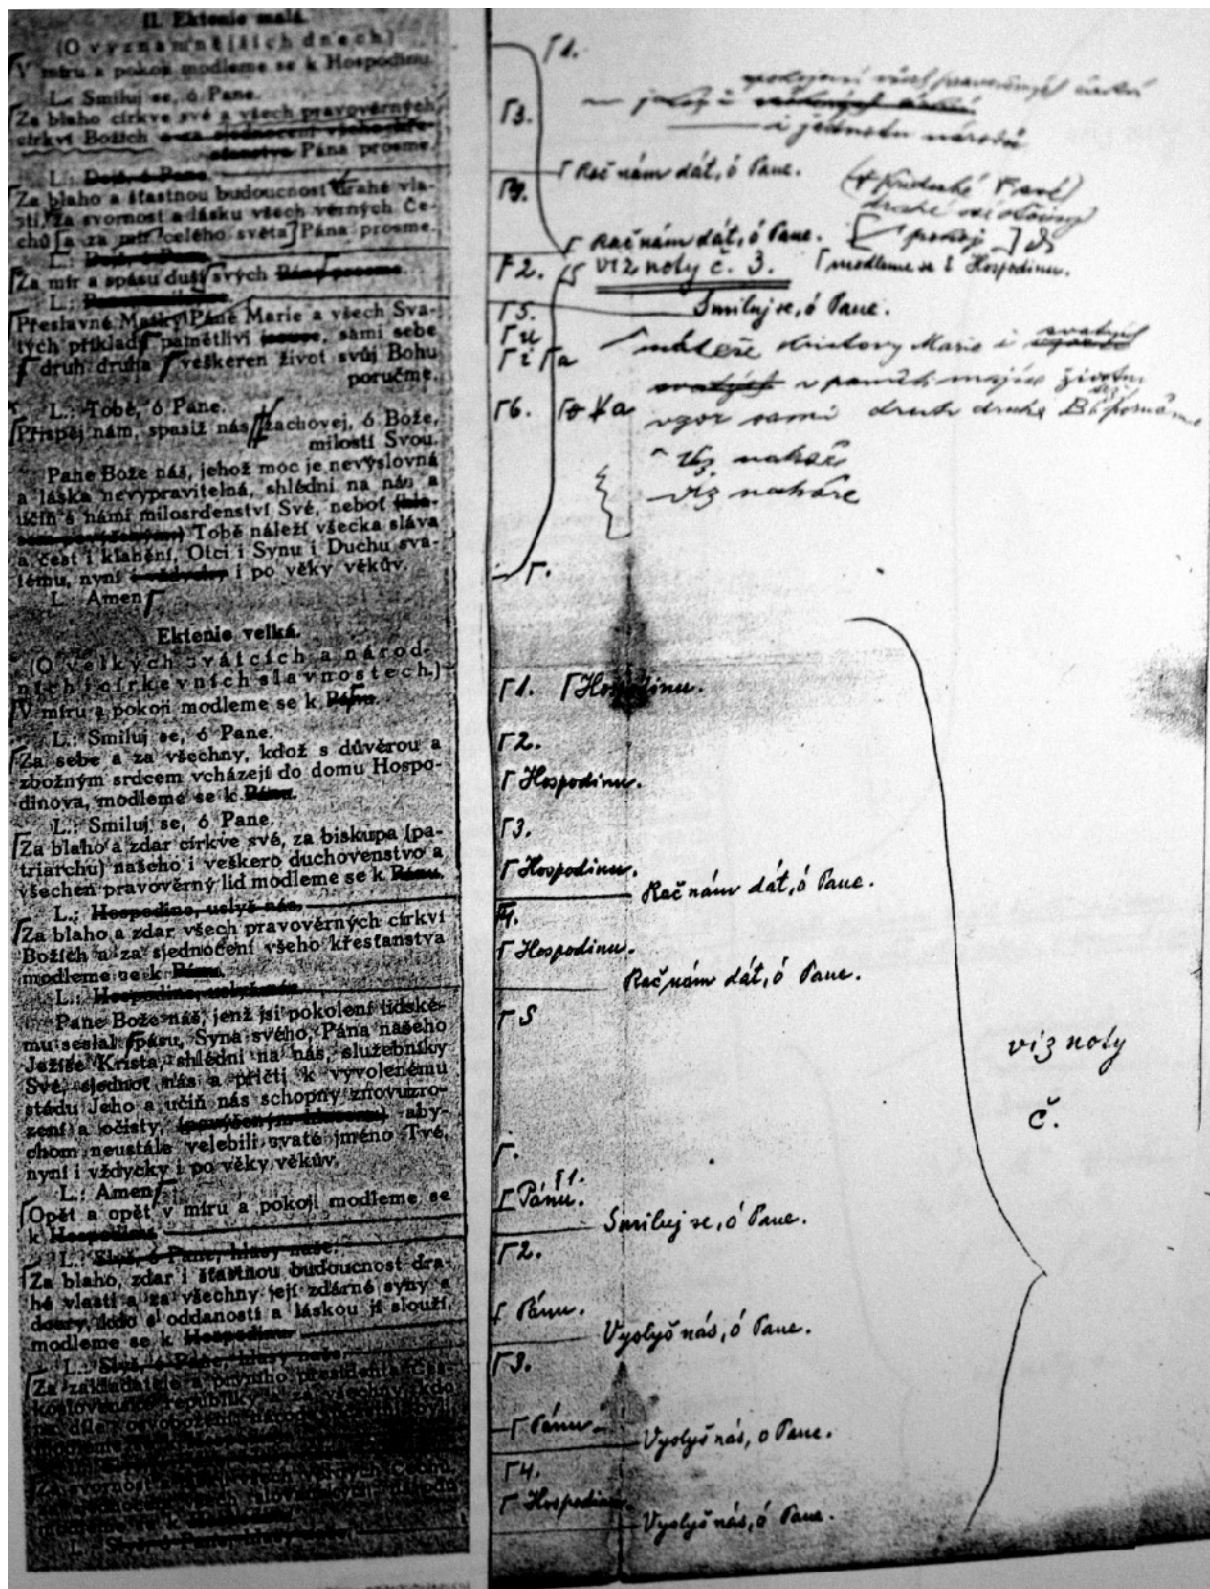 II. Ektenie malá.
(O významnějších dnech)
V míru a pokoji modleme se k Hospodinu.
L.: Smiluj se, ó Pane.
Za blaho církve své a všech pravověrných
církví Božích a za sjednocení všeho kře-
sťanstva Pána prosme.
L.: Dejž, ó Pane.
Za blaho a šťastnou budoucnost drahé vla-
sti, za svornost a lásku všech věrných Če-
chů a za mír celého světa Pána prosme.
L.: Dejž, ó Pane.
Za mír a spásu duší svých Pána prosme.
L.:
Přeslavné Matky Páně Marie a všech Sva-
tých příkladů pamětliví jsouce, sami sebe
druh druha veškeren život svůj Bohu
poručme.
L.: Tobě, ó Pane.
Přispěj nám, spasiž nás zachovej, ó Bože,
milostí Svou.
Pane Bože náš, jehož moc je nevýslovná
a láska nevypravitelná, shlédni na nás a
učiň s námi milosrdenství Své, neboť
Tobě náleží všecka sláva
a čest i klanění, Otci i Synu i Duchu sva-
tému, nyní i vždycky i po věky věkův.
L.: Amen
Ektenie velká.
(O velkých svátcích a národ-
ních i církevních slavnostech.)
V míru a pokoji modleme se k Pánu.
L.: Smiluj se, ó Pane.
Za sebe a za všechny, kdož s důvěrou a
zbožným srdcem vcházejí do domu Hospo-
dinova, modleme se k Pánu.
L.: Smiluj se, ó Pane.
Za blaho a zdar církve své, za biskupa (pa-
triarchu) našeho i veškero duchovenstvo a
všechen pravověrný lid modleme se k Pánu.
L.: Hospodine, uslyš nás.
Za blaho a zdar všech pravověrných církví
Božích a za sjednocení všeho křesťanstva
modleme se k Pánu.
L.: Hospodine, uslyš nás.
Pane Bože náš, jenž jsi pokolení lidské-
mu seslal spásu, Syna svého, Pána našeho
Ježíše Krista, shlédni na nás, služebníky
Své, sjednoť nás a přičti k vyvolenému
stádu Jeho a učiň nás schopny znovuzro-
zení a očisty, (povýšeným hlasem) aby-
chom neustále velebili svaté jméno Tvé,
nyní i vždycky i po věky věkův.
L.: Amen
Opět a opět v míru a pokoji modleme se
k Hospodinu.
L.: Slyš, ó Pane, hlasy naše.
Za blaho, zdar i šťastnou budoucnost dra-
hé vlasti a za všechny její zdárné syny a
dcery, kdo s oddaností a láskou jí slouží,
modleme se k Hospodinu.
L.: Slyš, ó Pane, hlasy naše.
Za zakladatele a prvního presidenta Čes-
koslovenské republiky a za všechny, kdo
modleme se k
Za svornost věrných Čechů,
slovanských národů
modleme se k
L.: Slyš, ó Pane, hlasy naše.
1.
3.
i jednotu národů
Rač nám dát, ó Pane.
9.
Rač nám dát, ó Pane. [pokoj]
2. viz noty č. 3. modleme se k Hospodinu.
5. Smiluj se, ó Pane.
u
i a mateře Marie i svatých
6. o a vzor sami druh druha
viz nahoře
viz nahoře
1. Hospodinu.
2.
Hospodinu.
3.
Hospodinu.
Rač nám dát, ó Pane.
4.
Hospodinu.
Rač nám dát, ó Pane.
5
viz noty
č.
1.
Pánu.
Smiluj se, ó Pane.
2.
Pánu.
Vyslyš nás, ó Pane.
3.
Pánu.
Vyslyš nás, o Pane.
4.
Hospodinu.
Vyslyš nás, ó Pane.